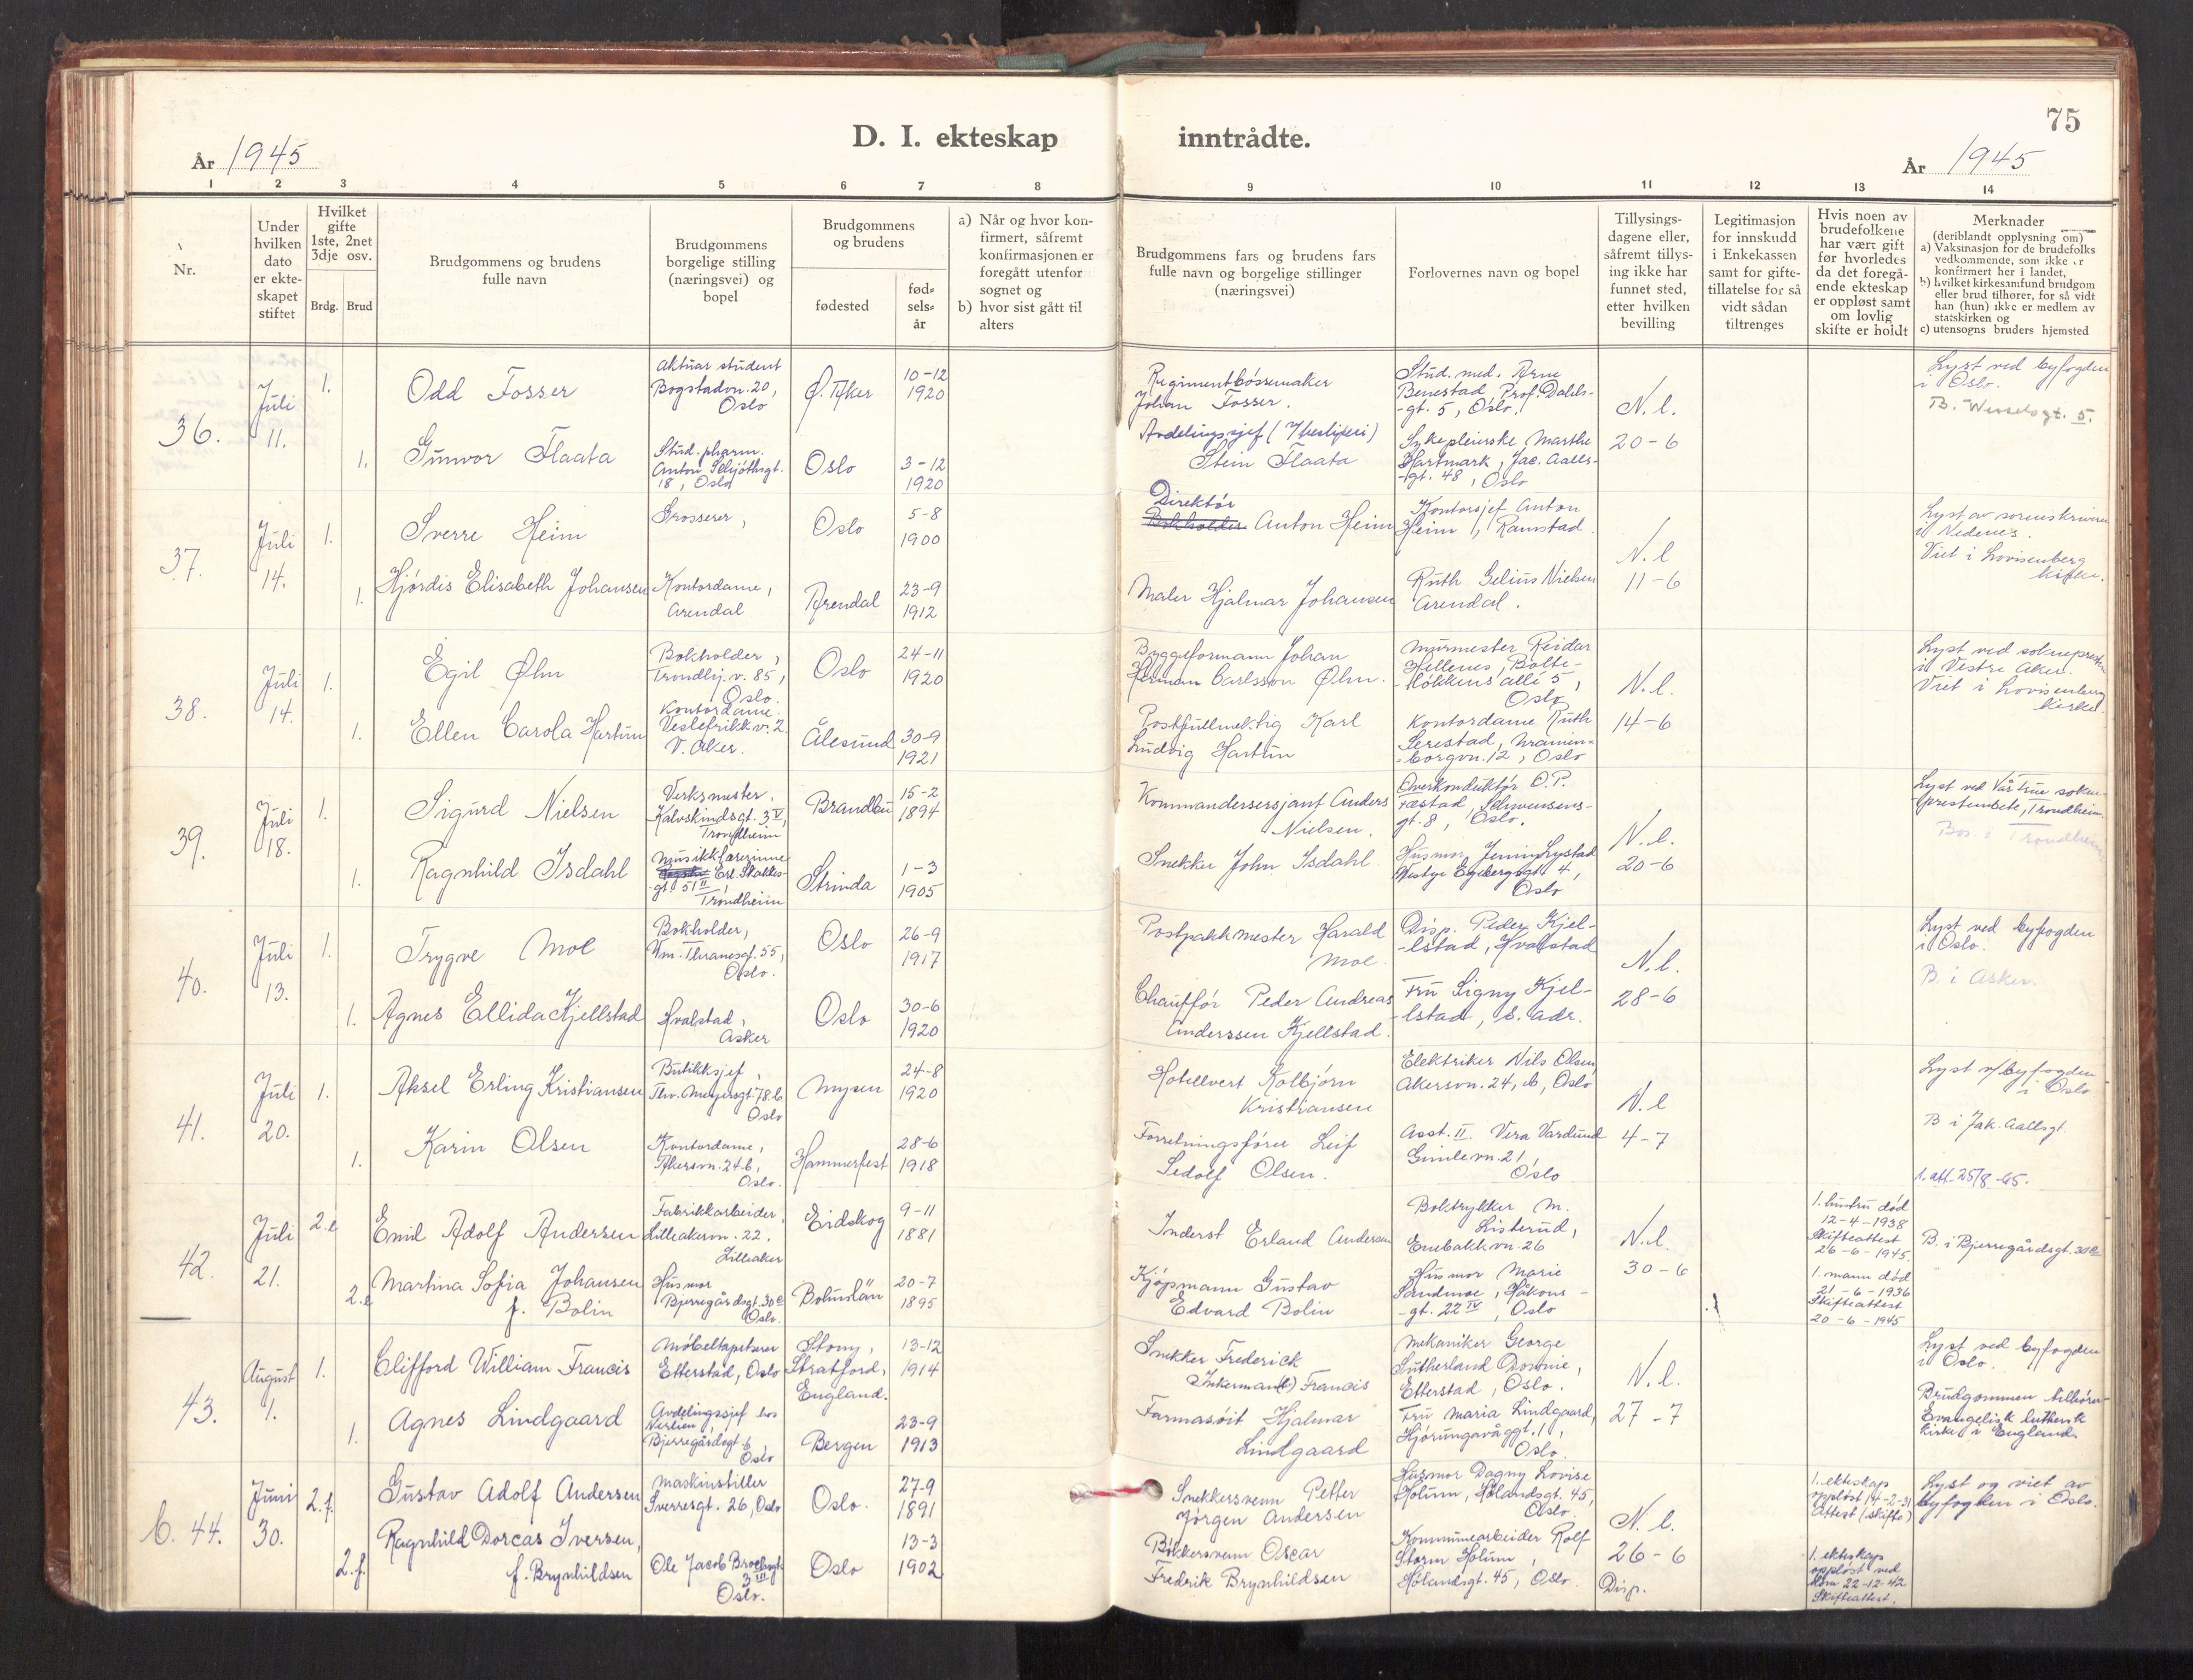 75
D. I. ekteskap inntrådte.
År 1945
År 1945
1 2 3 4 5 6 7 8 9 10 11 12 13 14
Nr.
Under
hvilken
dato
er ekte-
skapet
stiftet
Hvilket
gifte
1ste, 2net
3dje osv.
Brdg. Brud
Brudgommens og brudens
fulle navn
Brudgommens
borgelige stilling
(næringsvei) og
bopel
Brudgommens
og brudens
fødested
fød-
sels-
år
a) Når og hvor kon-
firmert, såfremt
konfirmasjonen er
foregått utenfor
sognet og
b) hvor sist gått til
alters
Brudgommens fars og brudens fars
fulle navn og borgelige stillinger
(næringsvei)
Forlovernes navn og bopel
Tillysings-
dagene eller,
såfremt tillys-
ing ikke har
funnet sted,
etter hvilken
bevilling
Legitimasjon
for innskudd
i Enkekassen
samt for gifte-
tillatelse for så
vidt sådan
tiltrenges
Hvis noen av
brudefolkene
har vært gift
før hvorledes
da det foregå-
ende ekteskap
er oppløst samt
om lovlig
skifte er holdt
Merknader
(deriblandt opplysning om)
a) Vaksinasjon for de brudefolks
vedkommende, som ikke er
konfirmert her i landet,
b) hvilket kirkesamfund brudgom
eller brud tilhører, for så vidt
han (hun) ikke er medlem av
statskirken og
c) utensogns bruders hjemsted
36.
Juli
11.
1.
Odd Fosser
Aktuar student
Bogstadvn. 20,
Oslo
Ø. Aker
10-12
1920
Regimentbøssemaker
Johan Fosser.
Stud. med. Arne
Benestad, Prof. Dahls-
-gt. 5, Oslo.
N. l.
20-6
Lyst ved byfogden
i Oslo.
B. Wesselsgt. 5.
1.
Gunvor Flaata
Stud. pharm.
Anton Schjøthsgt.
18, Oslo
Oslo
3-12
1920
Avdelingssjef
Stein Flaata
Sykepleierske Marthe
Hartmark, Jac. Aalls-
-gt. 48, Oslo
37.
Juli
14.
1.
Sverre Heim
Grosserer,
Oslo
5-8
1900
Direktør
Bokholder Anton Heim
Kontorsjef Anton
Heim, Ramstad.
N. l
11-6
Lyst av sorenskriveren
i Nedenes.
Viet i Lovisenberg
kirke.
1.
Hjørdis Elisabeth Johansen
Kontordame,
Arendal
Arendal
23-9
1912
Maler Hjalmar Johansen
Ruth Gelius Nielsen
Arendal.
38.
Juli
14.
1.
Egil Øhn
Bokholder,
Trondhj.v. 85,
Oslo.
Oslo
24-11
1920
Byggeformann Johan
Herman Carlsson Øhn.
Murmester Reidar
Hellenes, Bolte-
-løkkens allé 5,
Oslo
N. l.
14-6
Lyst ved sokneprest
i Vestre Aker.
Viet i Lovisenberg
kirke.
1.
Ellen Carola Hartun
Kontordame.
Veslefrikkv. 2
V. Aker.
Ålesund
30-9
1921
Postfullmektig Karl
Ludvig Hartun
Kontordame Ruth
Serestad, Uranien-
-borgvn. 12, Oslo
39.
Juli
18.
1.
Sigurd Nielsen
Verksmester,
Kalvskindsgt. 3 V,
Trondheim
Brandbu
15-2
1894
Kommandersersjant Anders
Nielsen.
Overkonduktør O.P.
Fæstad, Schwensens-
gt. 8, Oslo.
N. l.
20-6
Lyst ved Vår Frue sokne-
prestembete, Trondheim.
Bos. i Trondheim
1.
Ragnhild Isdahl
Musikklærerinne
Erl. Skakkes-
-gt. 51 II,
Trondheim
Strinda
1-3
1905
Snekker John Isdahl.
Husmor Jenny Lystad
Westye Egebergsgt. 4,
Oslo
40.
Juli
13.
1.
Trygve Moe
Bokholder,
Wm. Thranesgt. 55,
Oslo.
Oslo
26-9
1917
Postpakkmester Harald
Moe.
Disp. Peder Kjel-
-lstad, Hvalstad
N. l.
28-6
Lyst ved byfogden
i Oslo.
B. i Asker.
1.
Agnes Ellida Kjellstad
Hvalstad,
Asker
Oslo
30-6
1920
Chauffør Peder Andreas
Anderssen Kjellstad.
Fru Signy Kjel-
lstad, s. adr.
41.
Juli
20.
1.
Aksel Erling Kristiansen
Butikksjef,
Thv. Meyersgt. 78 b
Oslo
Mysen
24-8
1920
Hotellvert Kolbjørn
Kristiansen
Elektriker Nils Olsen
Akersvn. 24, b, Oslo
N. l
4-7
Lyst v/ byfogden
i Oslo
B i Jak. Aallsgt.
1. att. 25/8-45.
1.
Karin Olsen
Kontordame,
Akersvn. 24 b,
Oslo.
Hammerfest
28-6
1918
Forretningsfører Leif
Sedolf Olsen.
Asst. II. Vera Vardund
Gimlevn. 21,
Oslo
42.
Juli
21.
2. e
Emil Adolf Andersen
Fabrikkarbeider,
Lilleakervn. 22,
Lilleaker
Eidskog
9-11
1881
Inderst Erland Andersen
Boktrykker M.
Listerud,
Enebakkvn. 26
N. l.
30-6
1. hustru død
12-4-1938
Skifteattest
26-6-1945.
B. i Bjerregårdsgt. 30 c
2. e
Martina Sofia Johansen
f. Bolin
Husmor
Bjerregårdsgt. 30 c
Oslo.
Bohuslän
20-7
1895
Kjøpmann Gustav
Edvard Bolin
Husmor Marie
Sandmoe, Håkons-
-gt. 22 IV, Oslo
1. mann død
21-6-1936
Skifteattest
20-6-1945
43.
August
1.
1.
Clifford William Francis
Møbeltapetserer
Etterstad, Oslo
Stony,
Stratford,
England.
13-12
1914
Snekker Frederick
Inkerman(?) Francis
Mekaniker George
Sutherland Downie,
Etterstad, Oslo.
N. l.
27-7
Lyst ved byfogden
i Oslo.
Brudgommen tilhører
Evangelisk luthersk
kirke i England.
1.
Agnes Lindgaard
Avdelingssjef hos
Bjerregårdsgt. 6,
Oslo
Bergen
23-9
1913
Farmasøit Hjalmar
Lindgaard
Fru Maria Lindgaard,
Hjørungavåggt. 1,
Oslo.
b. 44.
Juni
30.
2. f.
Gustav Adolf Andersen
Maskinstiller
Sverresgt. 26, Oslo
Oslo.
27-9
1891
Snekkersvenn Petter
Jørgen Andersen
Husmor Dagny Lovise
Holum, Hølandsgt. 45,
Oslo.
N. l.
26-6
Disp.
1. ekteskap
oppløst 14-2-31
Attest (skifte)
Lyst og viet av
byfogden i Oslo.
2. f.
Ragnhild Dorcas Iversen,
f. Brynhildsen
Ole Jacob Brochsgt.
3 III
Oslo.
Oslo
13-3
1902
Bøkkersvenn Oscar
Fredrik Brynhildsen
Kommunearbeider Rolf
Storm Holum,
Hølandsgt. 45, Oslo.
1. ekteskap
oppløst ved
dom 22-12-42
Skifteattest.